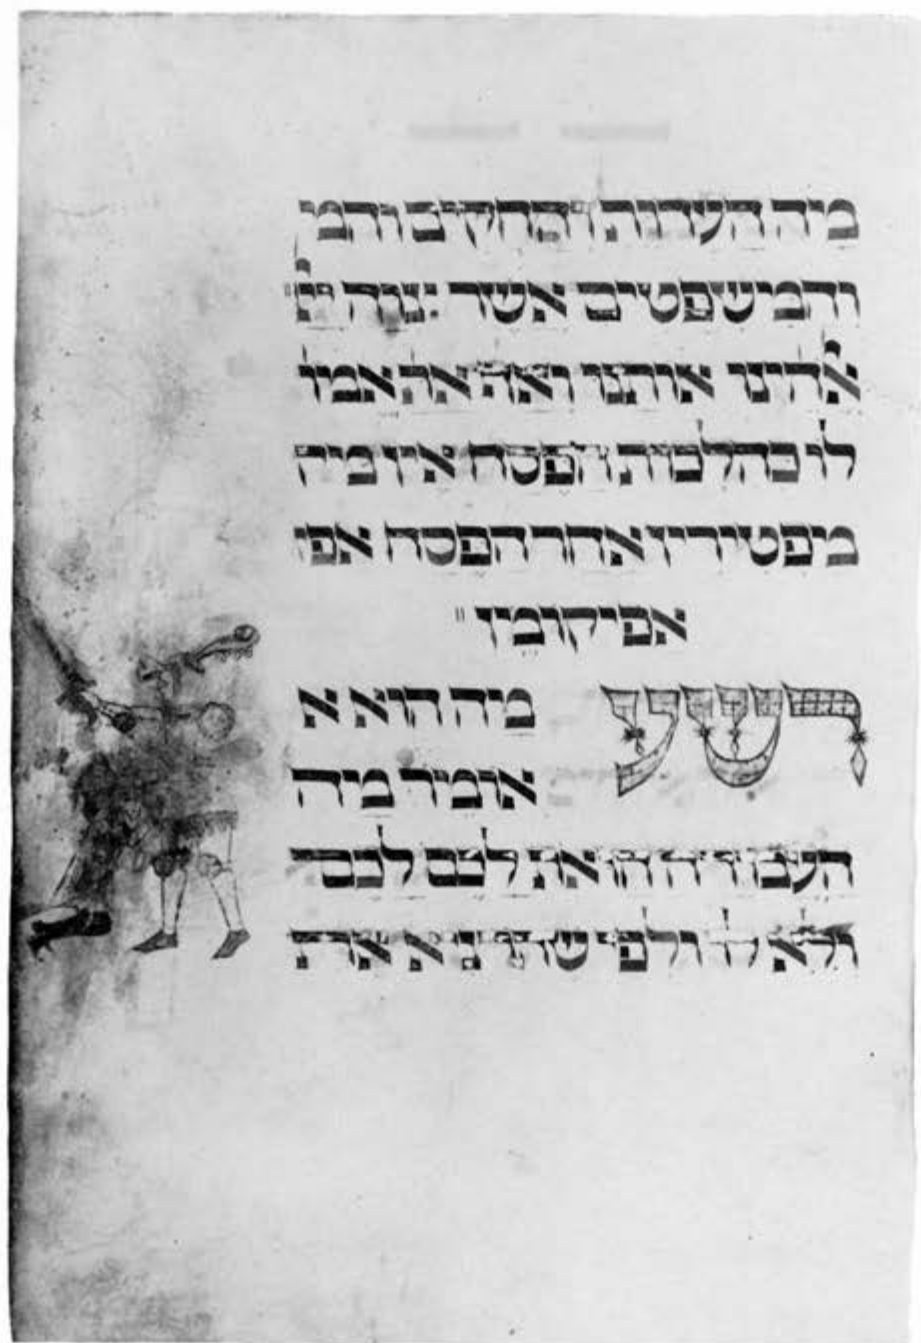 מה העדות והחקים והמ
והמשפטים אשר צוה יי֗
אלהינו אותנו ואף אתה אמו
לו כהלכות הפסח אין מ
מפטירין אחר הפסח אפי
אפיקומין
רשע
מה הוא א
אומר מה
העבודה הזאת לכם לכם
ולא לו ולפי שהוציא את